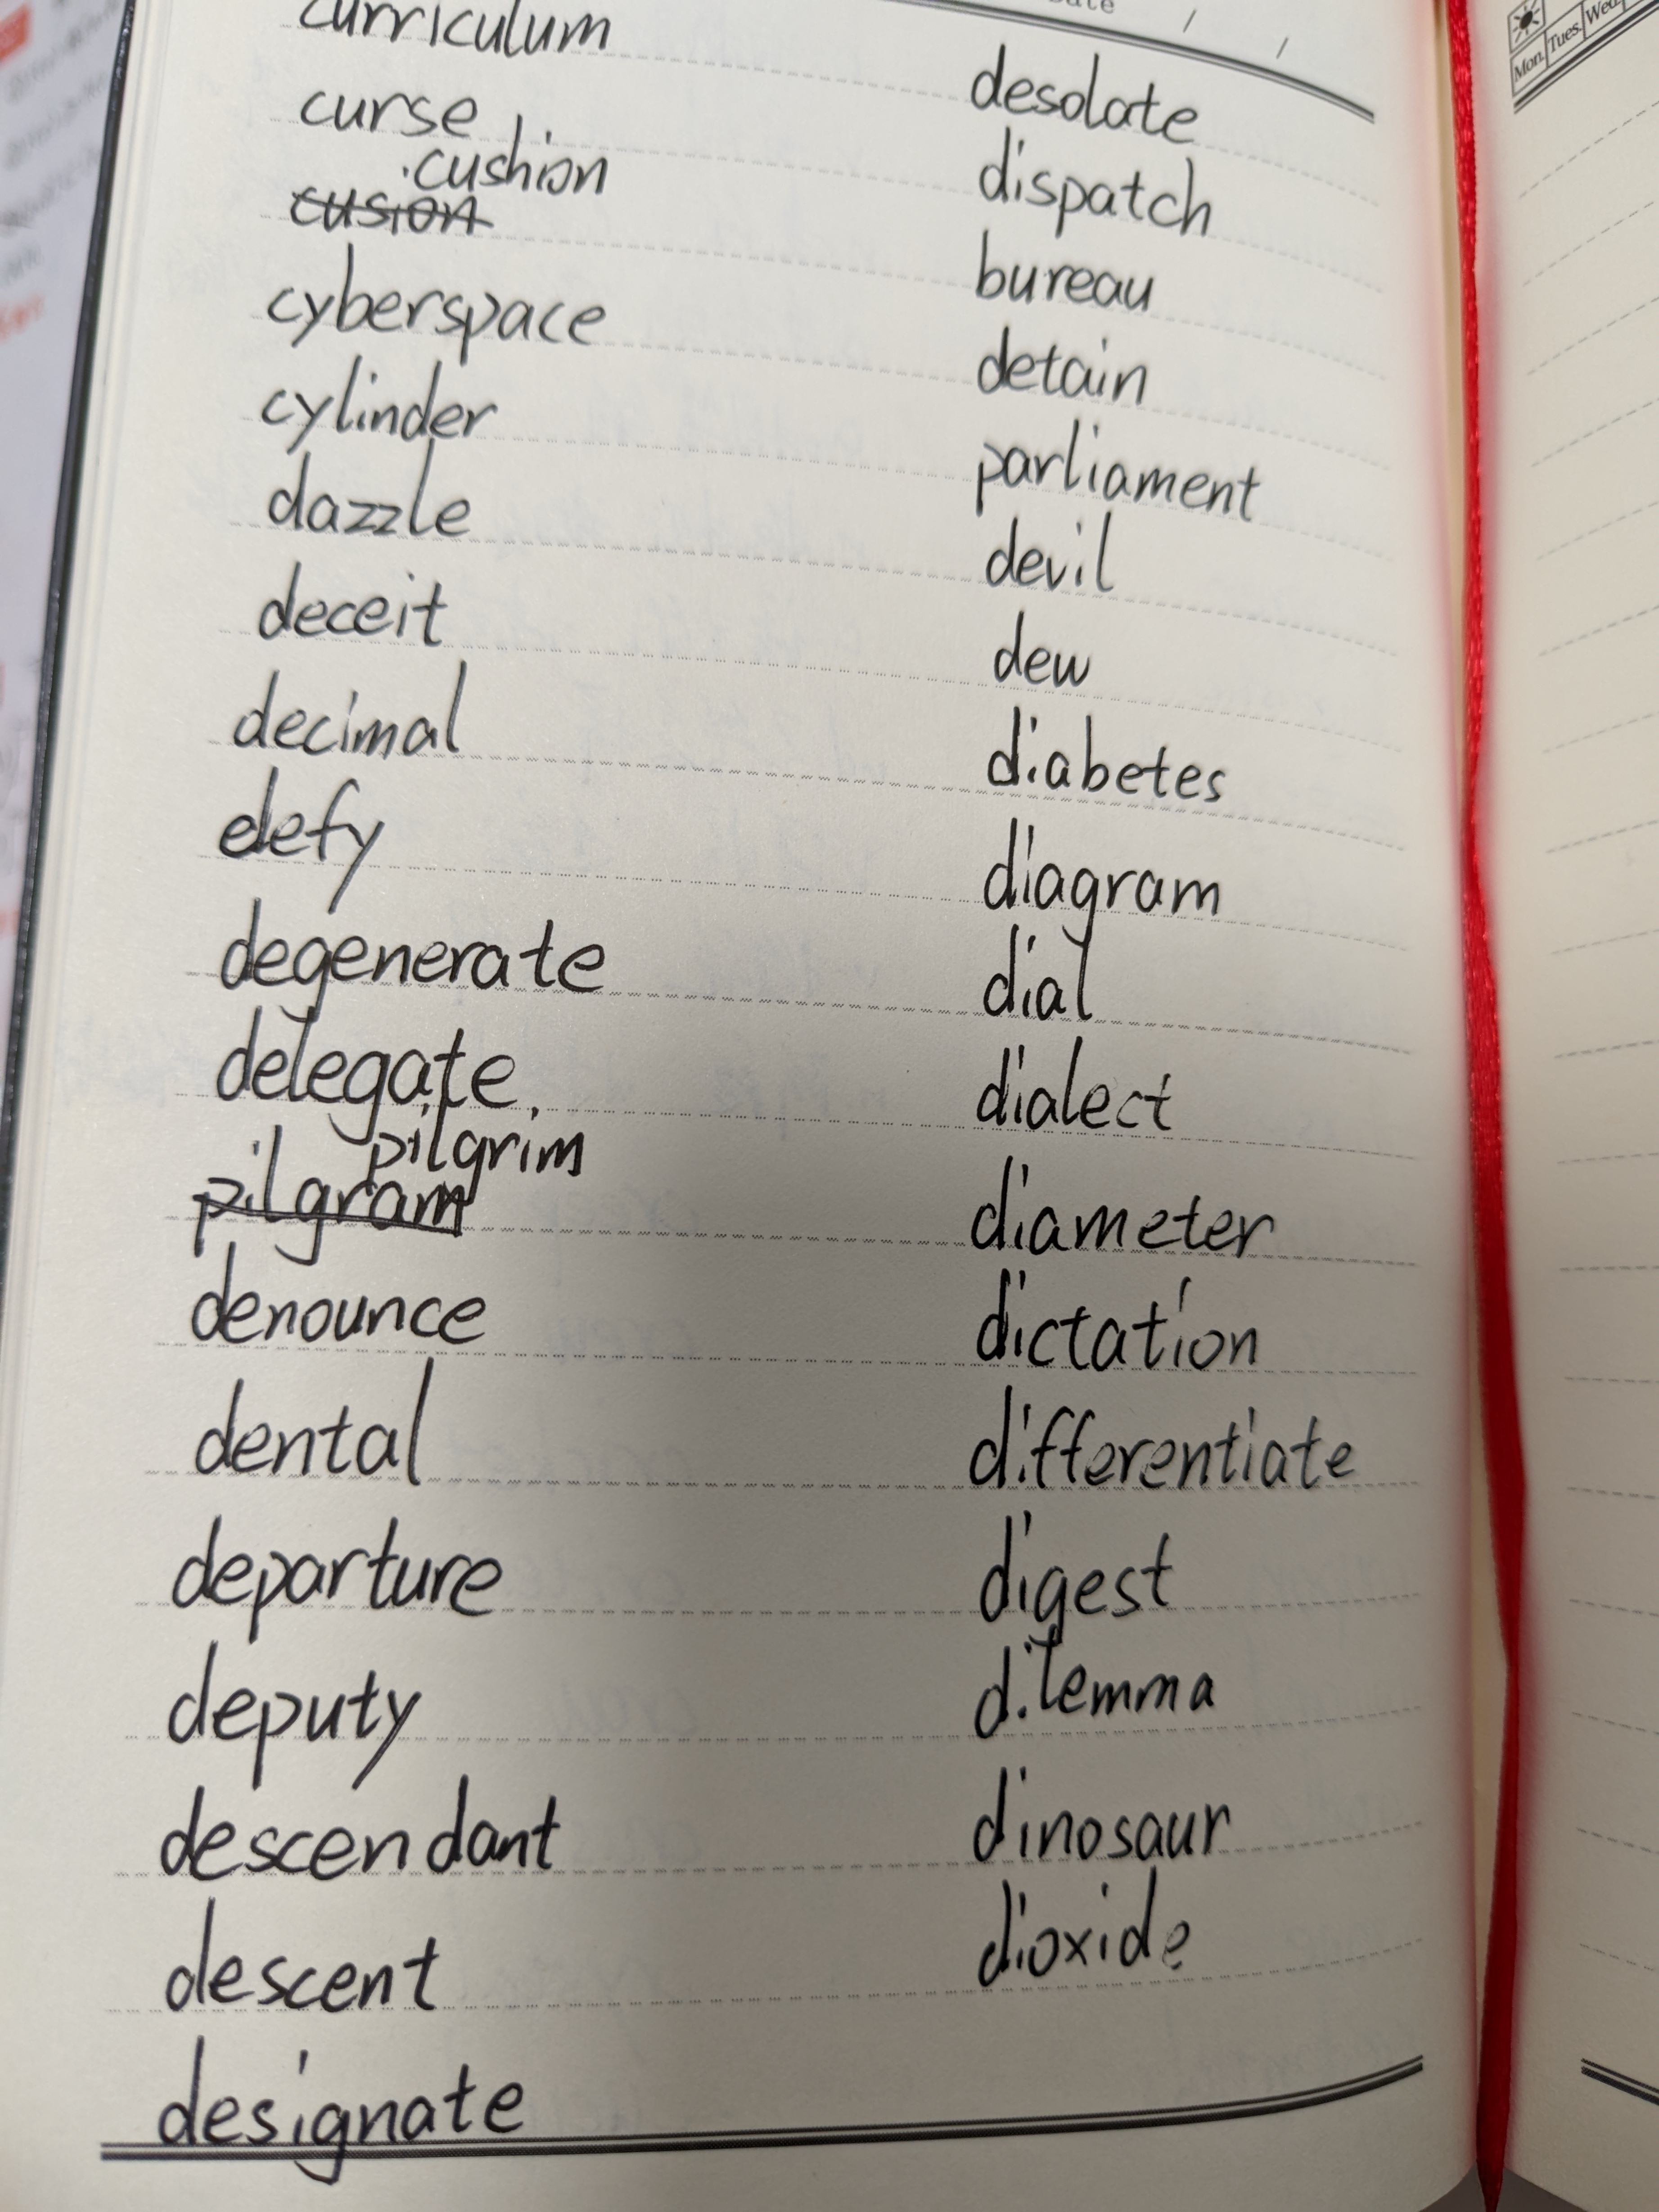 curriculum
curse
cushion
cusion
cyberspace
cylinder
dazzle
deceit
decimal
defy
degenerate
delegate
pilgrim
pilgram
denounce
dental
departure
deputy
descendant
descent
designate
desolate
dispatch
bureau
detain
parliament
devil
dew
diabetes
diagram
dial
dialect
diameter
dictation
differentiate
digest
dilemma
dinosaur
dioxide
Mon. Tues. Wed.